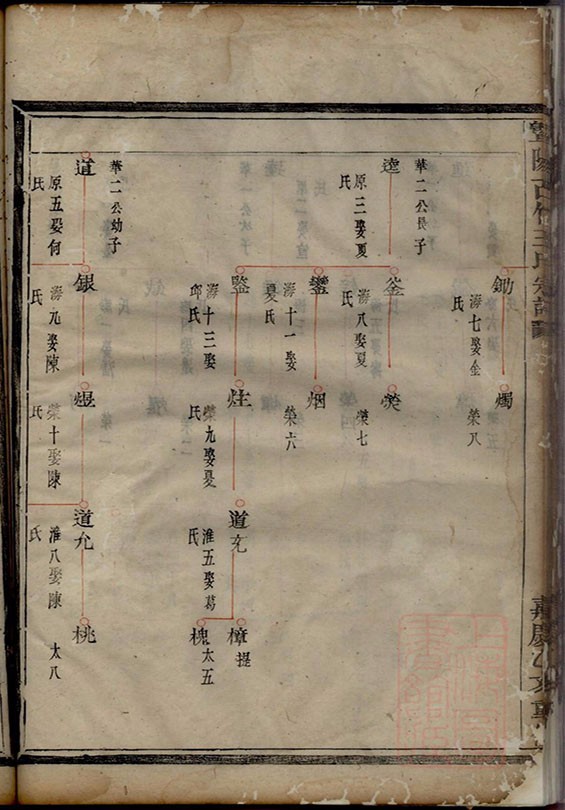 鋤
海七娶金
氏
燭
榮八
逵
華二公長子
原三娶夏
氏
釜
海八娶夏
氏
榮七
鑾
海十一娶
夏氏
烟
榮六
鑒
海十三娶
邱氏
炷
榮九娶夏
氏
道充
淮五娶葛
氏
樟
提
槐
太五
道
華二公幼子
原五娶何
氏
銀
海九娶陳
氏
煜
榮十娶陳
氏
道允
淮八娶陳
氏
桃
太八